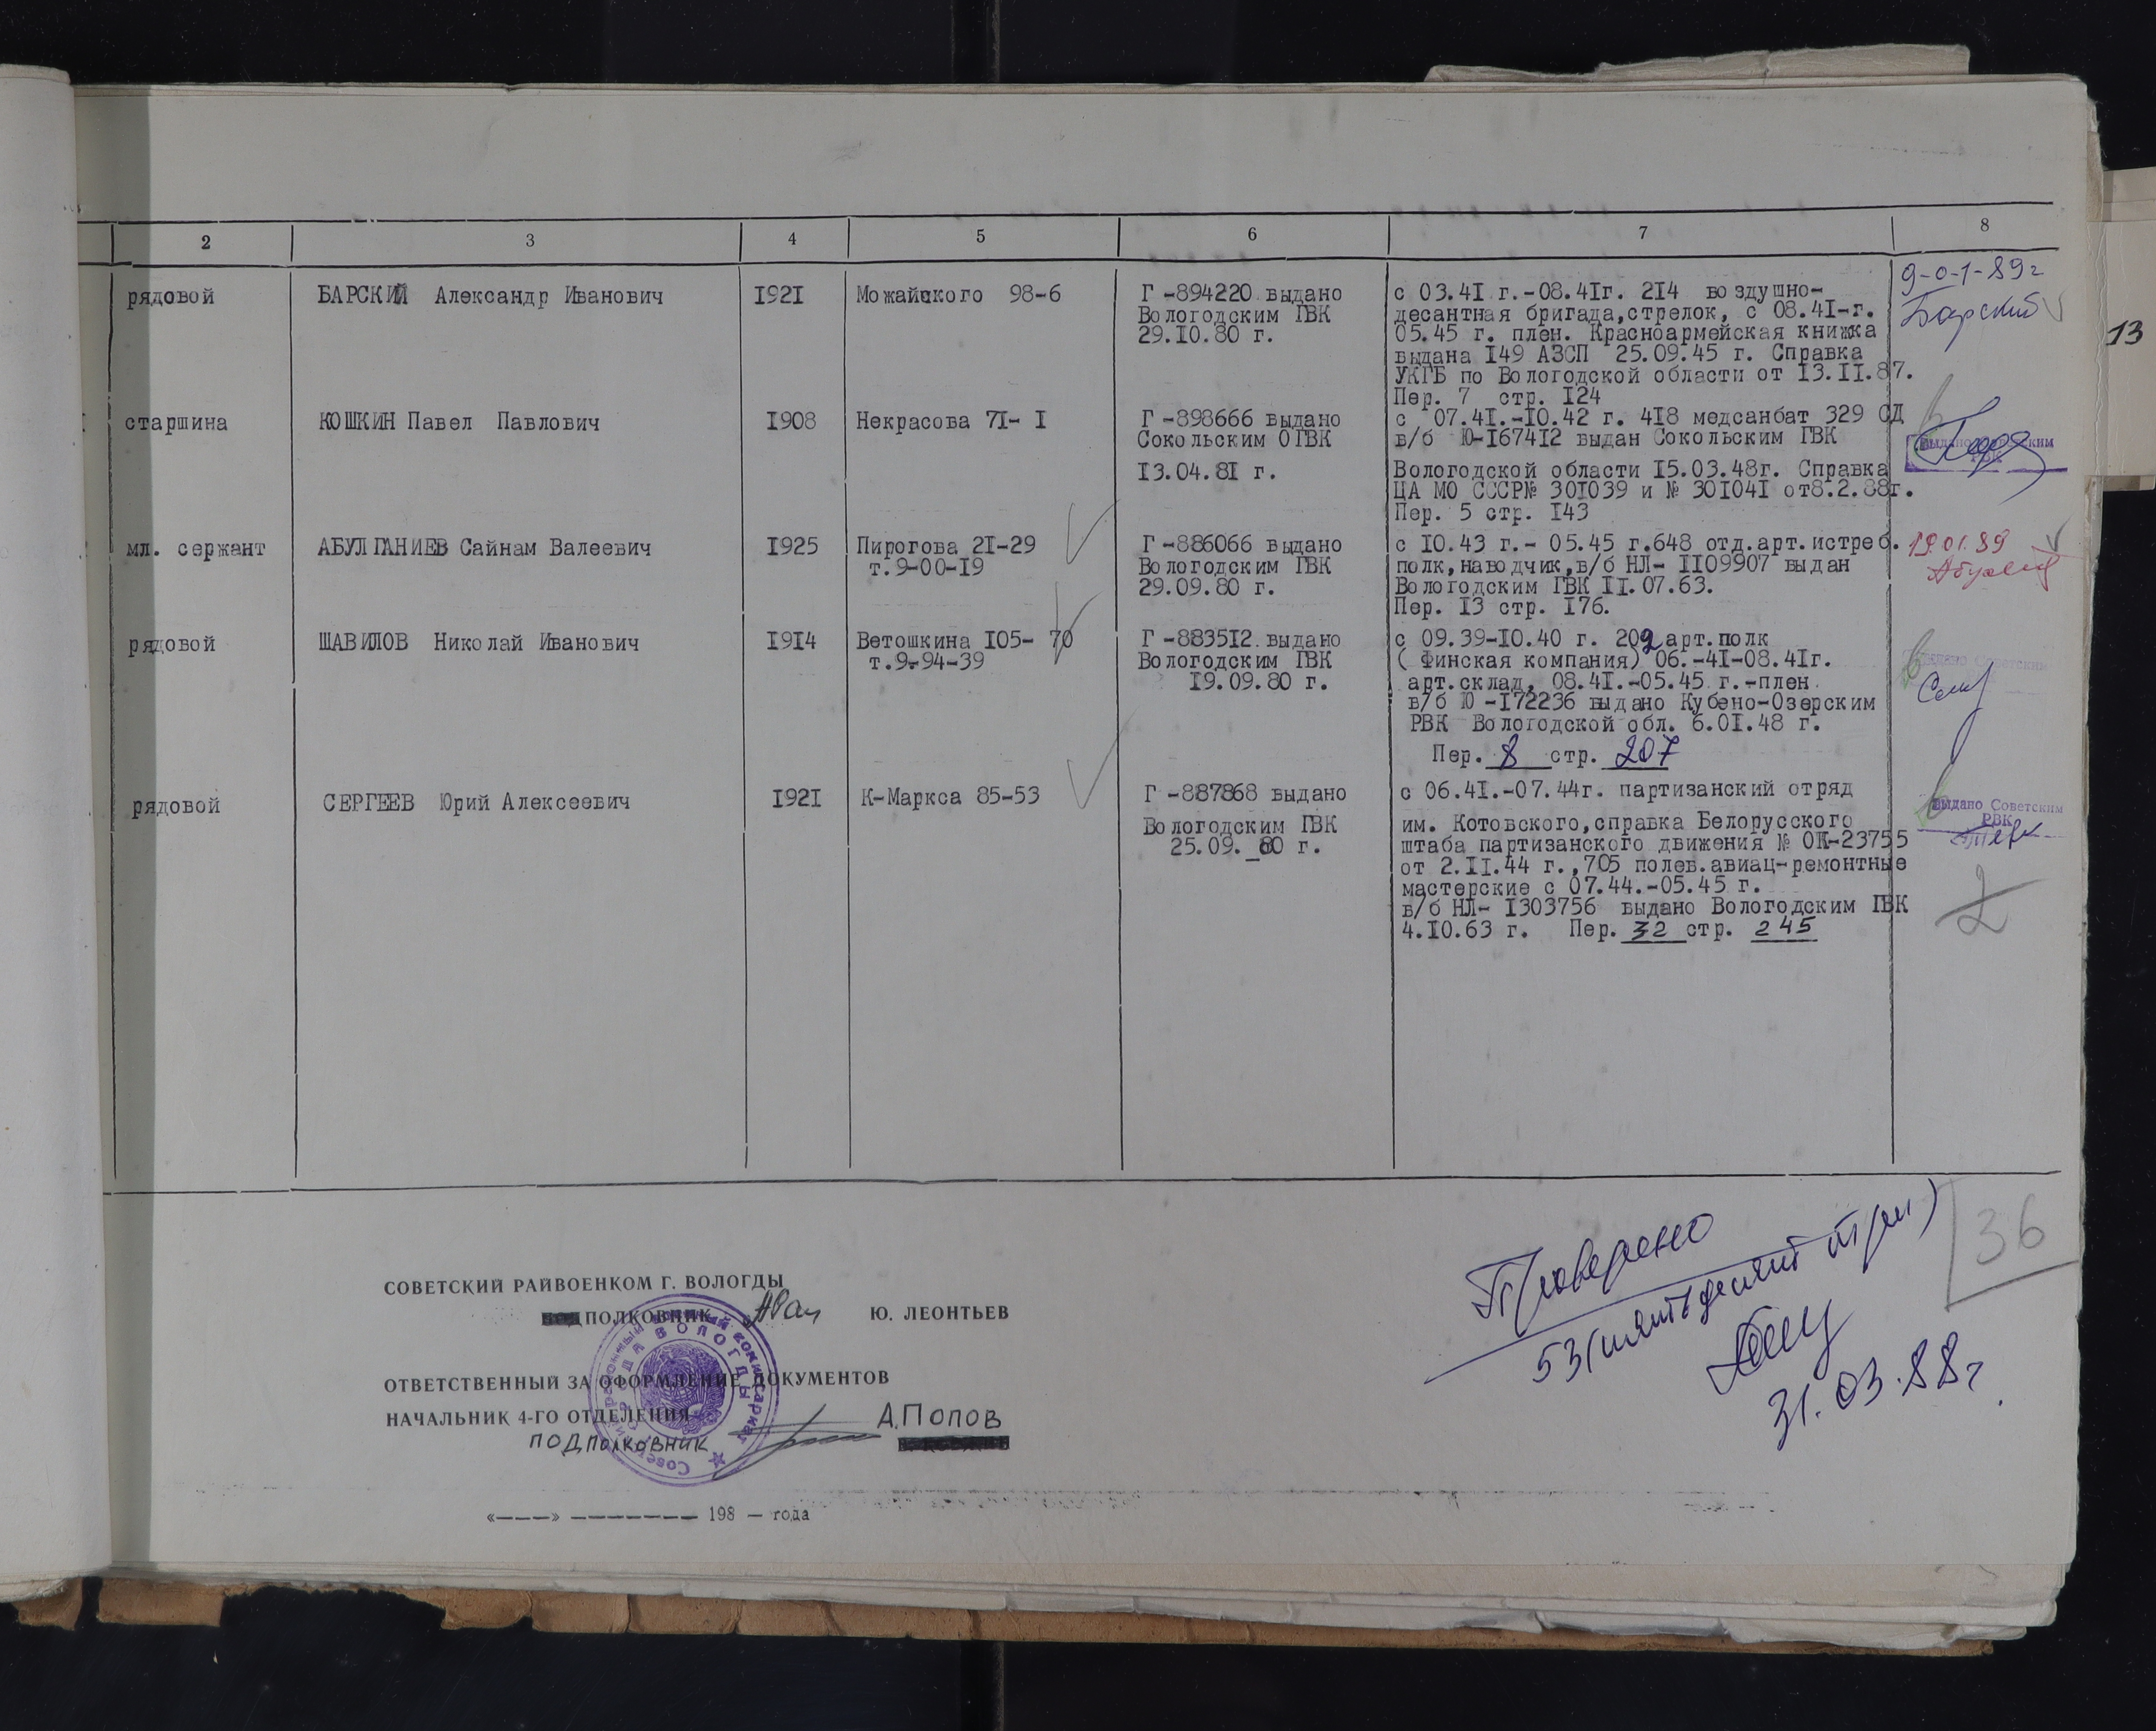 2 3 4 5 6 7 8
рядовой БАРСКИЙ Александр Иванович 1921 Можайского 98-6 Г -894220 выдано с 03.41 г.-08.41г. 214 воздушно- 9-01-89г
Вологодским ГВК десантная бригада,стрелок, с 08.41-г. Барский
29.10.80 г. 05.45 г. плен. Красноармейская книжка
выдана 149 АЗСП 25.09.45 г. Справка
УКГБ по Вологодской области от 13.11.87.
Пер. 7 стр. 124
13
старшина КОШКИН Павел Павлович 1908 Некрасова 71- 1 Г -898666 выдано с 07.41.-10.42 г. 418 медсанбат 329 СД
Сокольским ОГВК в/б Ю-167412 выдан Сокольским ГВК Выдано Советским
РВК
13.04.81 г. Вологодской области 15.03.48г. Справка
ЦА МО СССР№ 301039 и № 301041 от8.2.88г.
Пер. 5 стр. 143
мл. сержант АБУЛГАНИЕВ Сайнам Валеевич 1925 Пирогова 21-29 Г -886066 выдано с 10.43 г.- 05.45 г.648 отд.арт.истреб. 19.01.89
т.9-00-19 Вологодским ГВК полк,наводчик,в/б НЛ- 1109907 выдан
29.09.80 г. Вологодским ГВК 11.07.63.
Пер. 13 стр. 176.
рядовой ШАВИЛОВ Николай Иванович 1914 Ветошкина 105- 70 Г -883512 выдано с 09.39-10.40 г. 202 арт.полк
т.9-94-39 Вологодским ГВК ( Финская компания) 06.-41-08.41г. Выдано Советским
19.09.80 г. арт.склад, 08.41.-05.45 г.-плен.
в/б Ю -172236 выдано Кубено-Озерским
РВК Вологодской обл. 6.01.48 г.
Пер. 8 стр. 207
рядовой СЕРГЕЕВ Юрий Алексеевич 1921 К-Маркса 85-53 Г -887868 выдано с 06.41.-07.44г. партизанский отряд
Вологодским ГВК им. Котовского,справка Белорусского Выдано Советским
РВК
25.09._80 г. штаба партизанского движения № ОК-23755
от 2.11.44 г.,705 полев.авиац-ремонтные
мастерские с 07.44.-05.45 г.
в/б НЛ- 1303756 выдано Вологодским ГВК
4.10.63 г. Пер. 32 стр. 245
2
36
Проверено
53 (пятьдесят три)
31.03.88г.
СОВЕТСКИЙ РАЙВОЕНКОМ Г. ВОЛОГДЫ
ПОЛКОВНИК Ю. ЛЕОНТЬЕВ
ОТВЕТСТВЕННЫЙ ЗА ОФОРМЛЕНИЕ ДОКУМЕНТОВ
НАЧАЛЬНИК 4-ГО ОТДЕЛЕНИЯ
ПОДПОЛКОВНИК А.ПОПОВ
«———» ——————— 198 — года